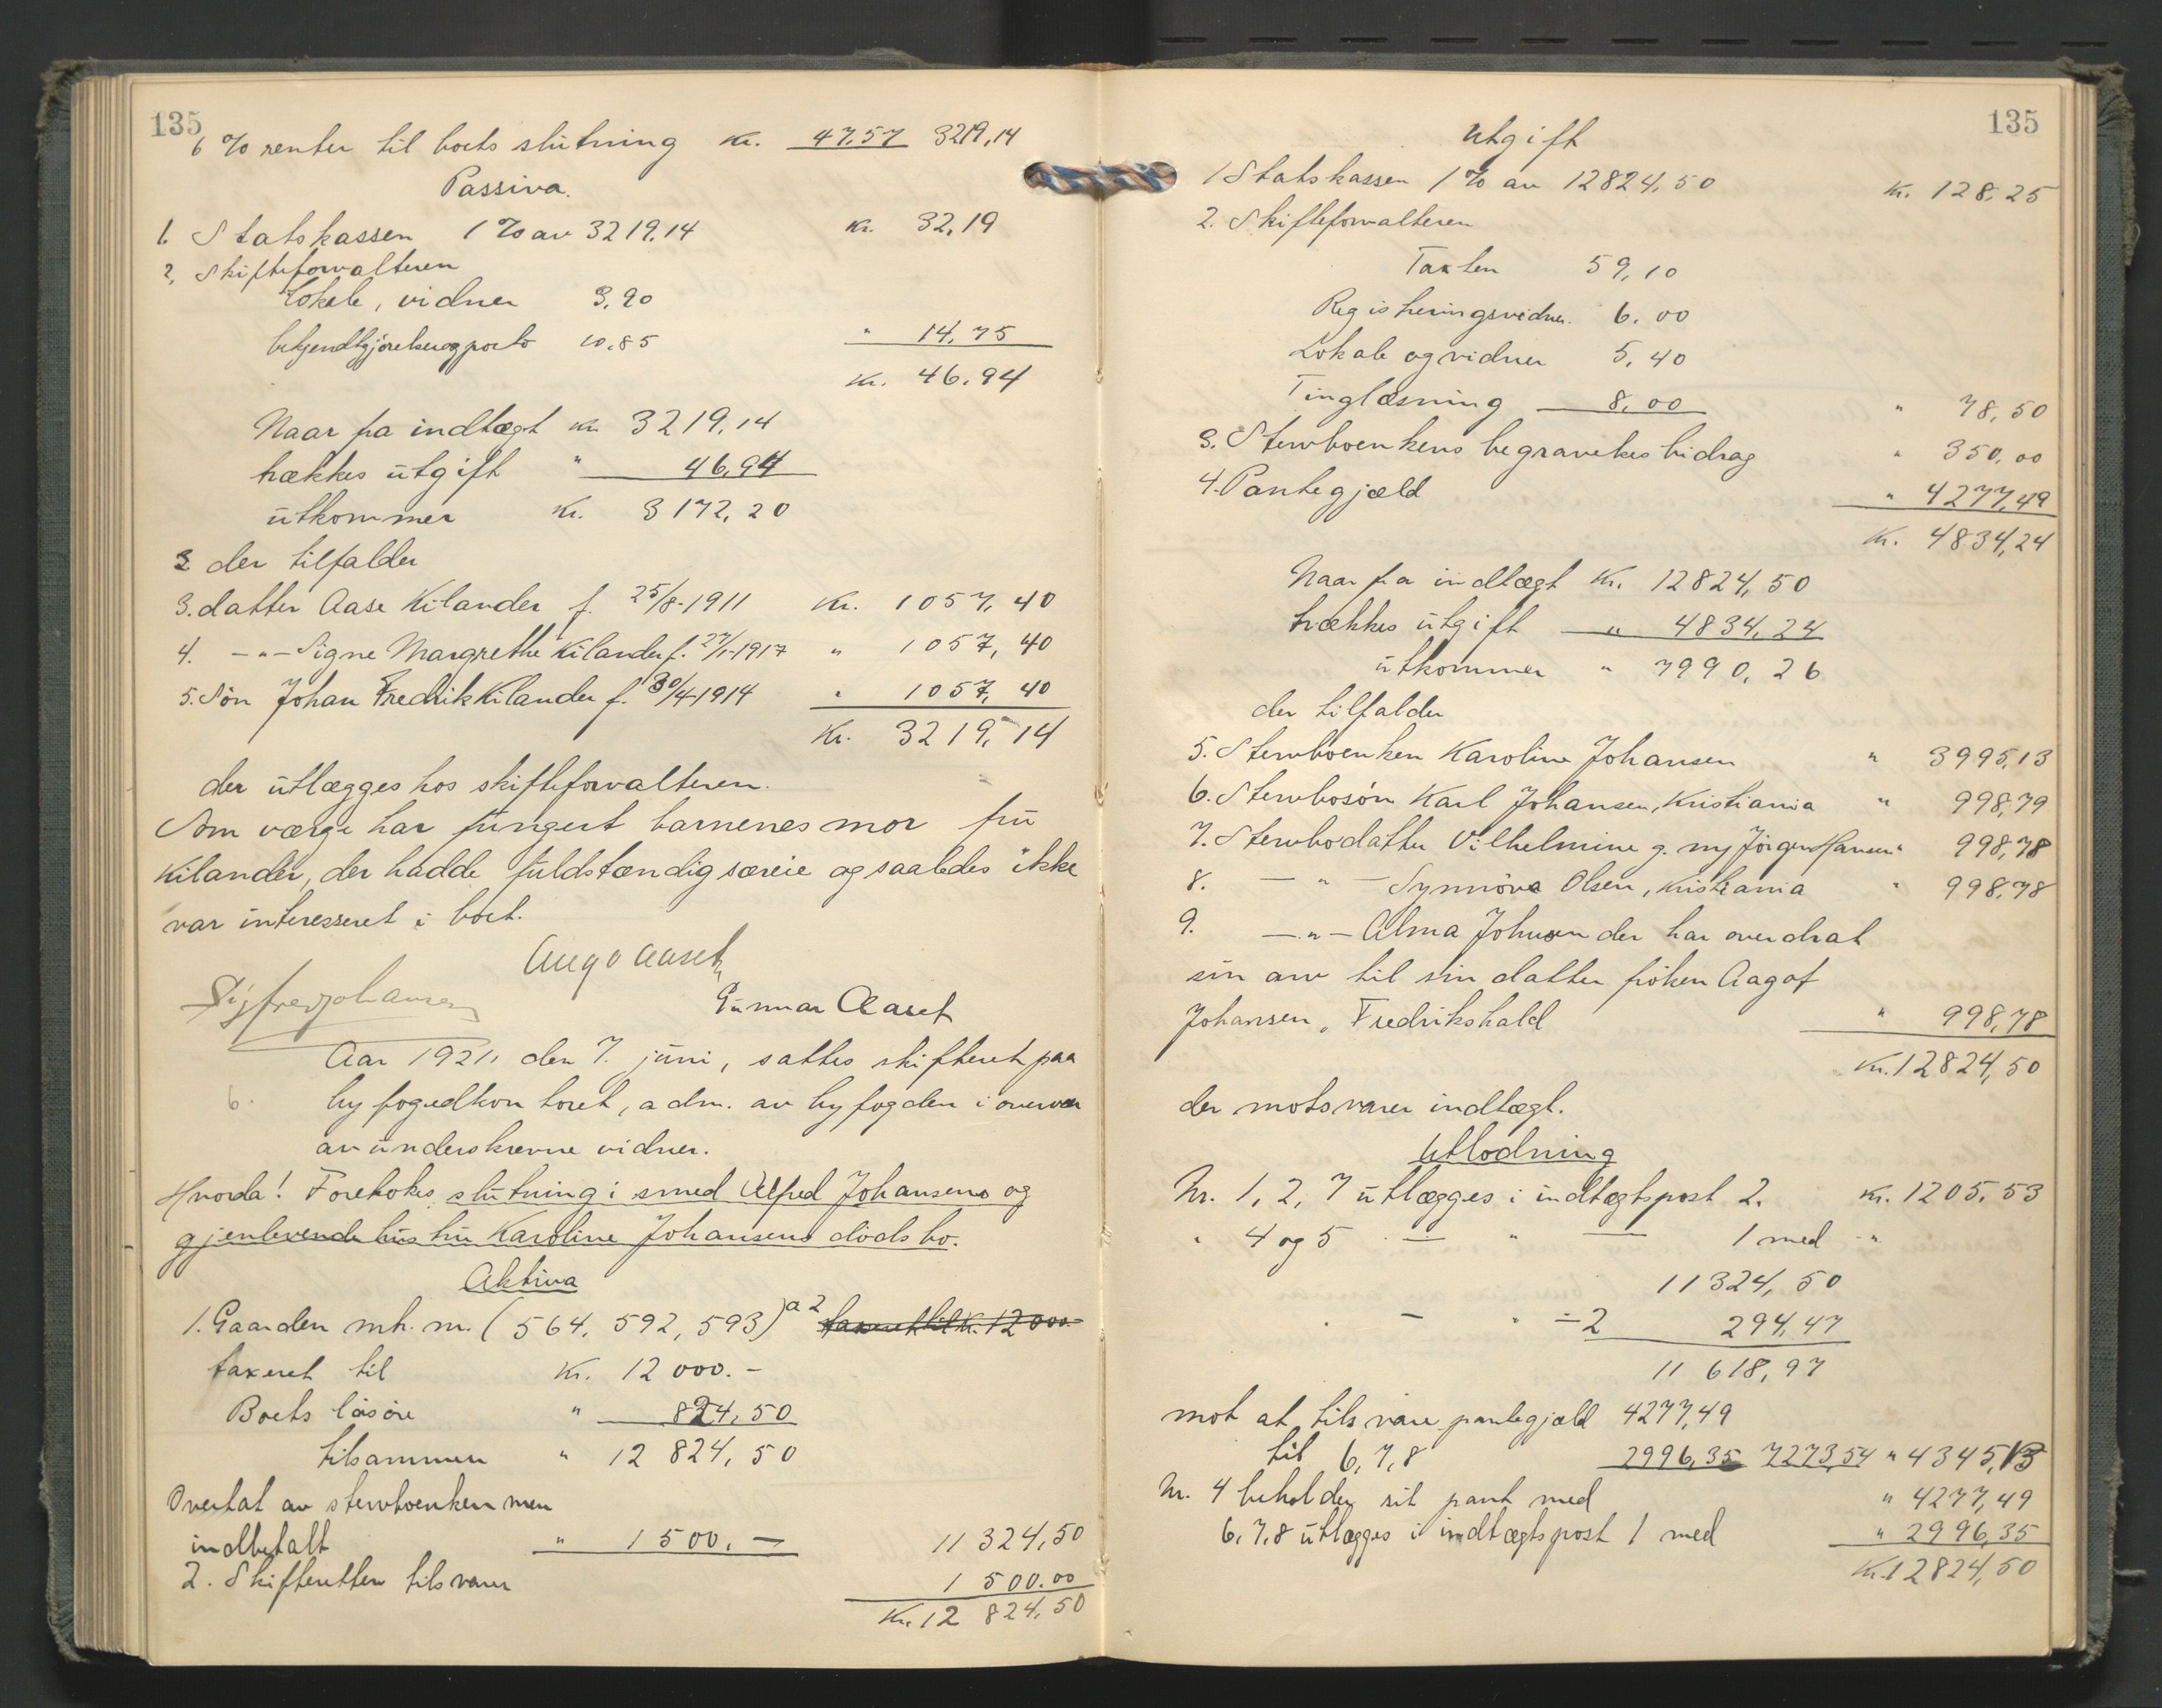 135
6 % renter til boets slutning Kr. 47,57 3219,14
Passiva.
1. Statskassen 1 % av 3219,14 Kr. 32,19
2, Skifteforvalteren
Lokale, vidner 3,90
bekjendtgjørelser og porto 10,85 " 14,75
Kr. 46,94
Naar fra indtægt Kr 3219,14
trækkes utgift " 46,94
utkommer Kr. 3172,20
der tilfalder
3. datter Aase Kilander f. 25/8-1911 Kr. 1057,40
4. -"- Signe Margrethe Kilander f. 27/1-1917 " 1057,40
5. Søn Johan Fredrik Kilander f. 30/4-1914 " 1057,40
Kr. 3219,14
der utlægges hos skifteforvalteren.
Som værge har fungert barnenes mor fru
Kilander, der hadde fuldstændig særeie og saaledes ikke
var interesseret i boet.
Aug Aaset
Sigfred Johansen Gunnar Aaset
Aar 1921, den 7. juni, sattes skifteret paa
6. byfogedkontoret, adm. av byfogden i overvær
av underskrevne vidner.
Hvorda! Foretokes slutning i smed Alfred Johansens og
gjenlevende hustru Karoline Johansens dødsbo.
Aktiva
1. Gaarden mtr. nr. (564, 592, 593) a 2 taxeret til Kr. 12000.-
taxeret til Kr. 12 000.-
Boets løsøre " 824,50
tilsammen " 12 824,50
Overtat av stervboenken men
indbetalt " 1500.- 11 324,50
2. Skifteretten tilsvarer 1 500.00
Kr. 12 824,50
135
Utgift
1 Statskassen 1 % av 12824,50 Kr. 128,25
2. Skifteforvalteren
Taxten 59,10
Registreringsvidner. 6.00
Lokale og vidner 5,40
Tinglæsning 8,00 " 78,50
3. Stervboenkens begravelsesbidrag " 350,00
4. Pantegjæld " 4277,49
Kr. 4834,24
Naar fra indtægt Kr. 12824,50
trækkes utgift " 4834,24
utkommer " 7990,26
der tilfalder
5. Stervboenken Karoline Johansen " 3995,13
6. Stervbosøn Karl Johansen, Kristiania " 998,79
7. Stervbodatter Vilhelmine g. m Jørgen Hansen " 998,78
8. -"- Synnøva Olsen, Kristiania " 998,78
9. -"- Alma Johnsen der har overdrat
sin arv til sin datter frøken Aagot
Johansen, Fredrikshald " 998,78
Kr. 12824,50
der motsvarer indtægt.
Utlodning
Nr. 1, 2, 7 utlægges i indtægtspost 2. Kr. 1205,53
" 4 og 5 — " — 1 med "
11324,50
" - " ÷ 2 294,47
11 618,97
mot at tilsvare pantegjæld 4277,49
til 6,7,8 2996,35 7273,54 " 4345,13
Nr. 4 beholder sit pant med " 4277,49
6,7,8 utlægges i indtægtspost 1 med " 2996,35
Kr. 12824,50